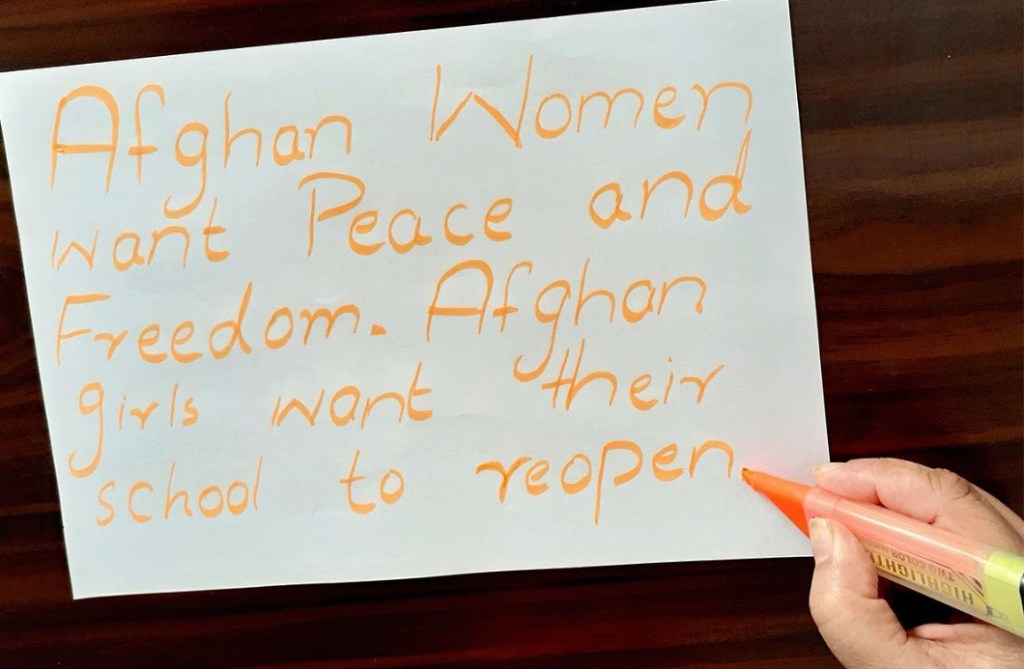 Afghan Women
want Peace and
Freedom. Afghan
girls want their
school to reopen
HIGHLIGHT
TWO COLOR